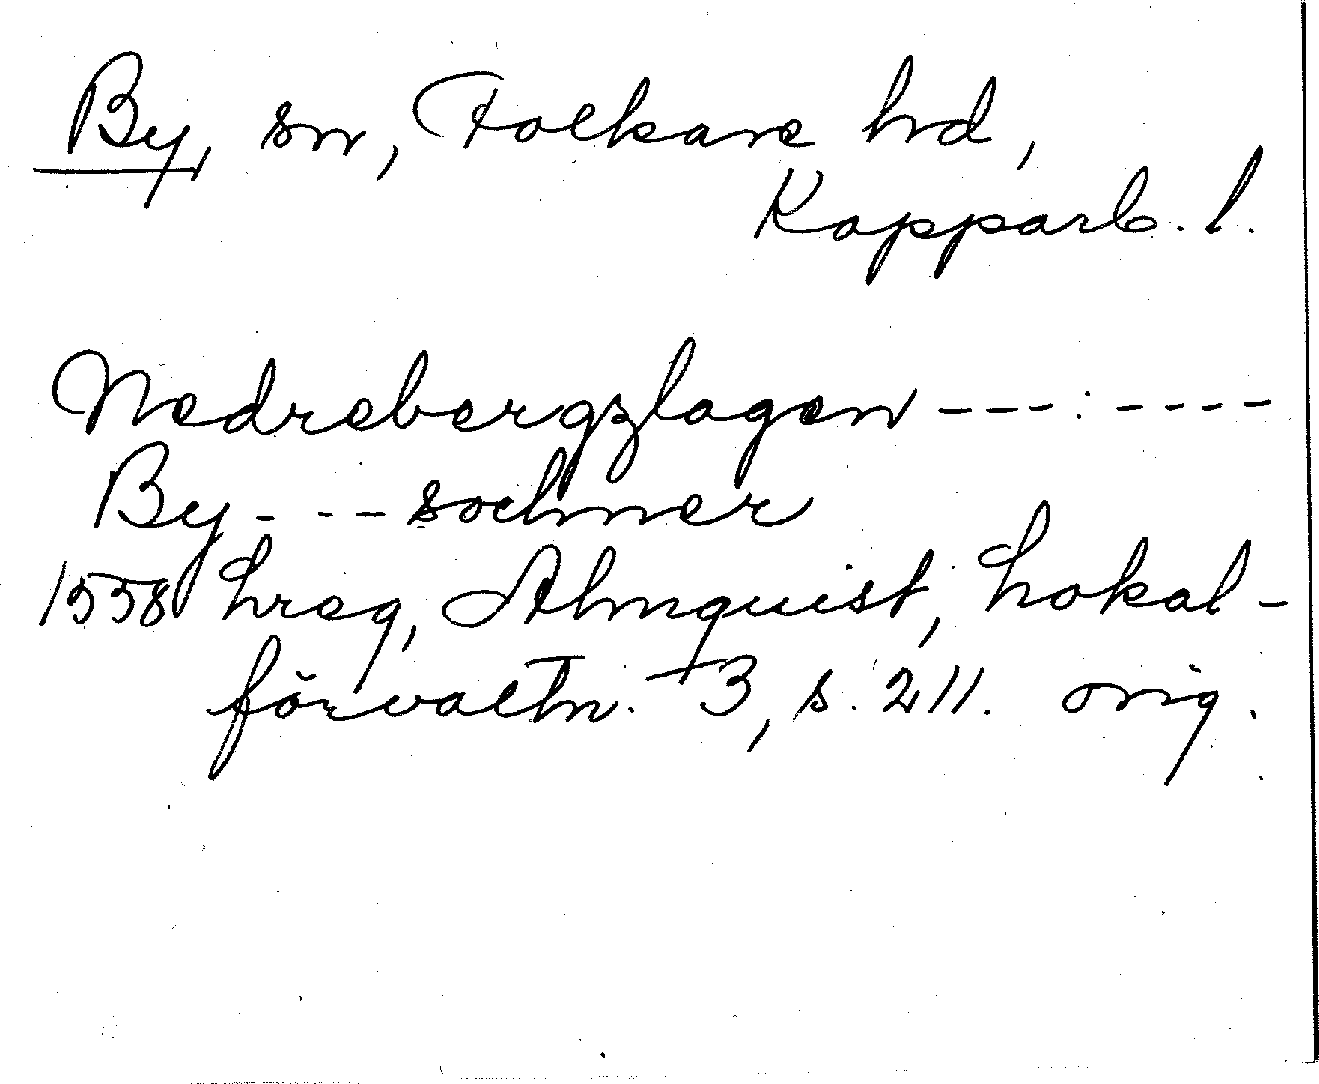 By, sn, Folkare hrd,
Kopparb. l.
Nedrebergzlagen ---:----
By --- sochner
1558 Lreg, Almquist, Lokal-
förvaltn. 3, s. 211. orig.